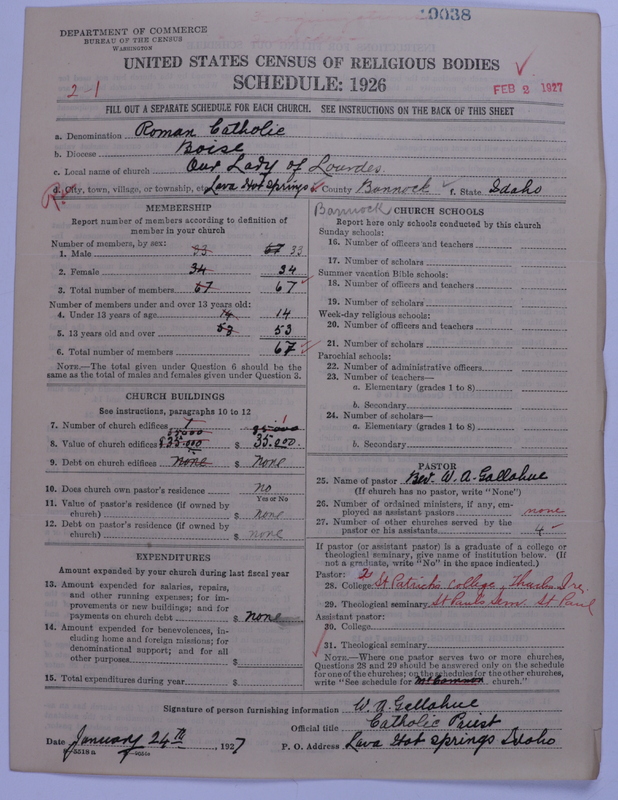 19038
DEPARTMENT OF COMMERCE
BUREAU OF THE CENSUS
WASHINGTON
UNITED STATES CENSUS OF RELIGIOUS BODIES
SCHEDULE: 1926
2-1
FEB 2 1927
FILL OUT A SEPARATE SCHEDULE FOR EACH CHURCH. SEE INSTRUCTIONS ON THE BACK OF THIS SHEET
a. Denomination Roman Catholic
b. Diocese Boise
c. Local name of church Our Lady of Lourdes
d. City, town, village, or township, etc Lava Hot Springs County Bannock f. State Idaho
MEMBERSHIP
Report number of members according to definition of
member in your church
Number of members, by sex:
1. Male 33 67 33
2. Female 34 34
3. Total number of members 67 67
Number of members under and over 13 years old:
4. Under 13 years of age 14 14
5. 13 years old and over 53 53
6. Total number of members 67
NOTE.—The total given under Question 6 should be
same as the total of males and females given under Question 3.
CHURCH BUILDINGS
See instructions, paragraphs 10 to 12
7. Number of church edifices 1 1
8. Value of church edifices $35.000 $ 35.000.
9. Debt on church edifices none $ none
10. Does church own pastor's residence no
Yes or No
11. Value of pastor's residence (if owned by
church) $ none
12. Debt on pastor's residence (if owned by
church) $ none
EXPENDITURES
Amount expended by your church during last fiscal year
13. Amount expended for salaries, repairs,
and other running expenses; for im-
provements or new buildings; and for
payments on church debt $ none
14. Amount expended for benevolences, in-
cluding home and foreign missions; for
denominational support; and for all
other purposes $
15. Total expenditures during year $
Bannock
CHURCH SCHOOLS
Report here only schools conducted by this church
Sunday schools:
16. Number of officers and teachers
17. Number of scholars
Summer vacation Bible schools:
18. Number of officers and teachers
19. Number of scholars
Week-day religious schools:
20. Number of officers and teachers
21. Number of scholars
Parochial schools:
22. Number of administrative officers
23. Number of teachers—
a. Elementary (grades 1 to 8)
b. Secondary
24. Number of scholars—
a. Elementary (grades 1 to 8)
b. Secondary
PASTOR
25. Name of pastor Rev. W. A. Gallahue
(If church has no pastor, write "None")
26. Number of ordained ministers, if any, em-
ployed as assistant pastors none
27. Number of other churches served by the
pastor or his assistants 4
If pastor (or assistant pastor) is a graduate of a college or
theological seminary, give name of institution below. (If
not a graduate, write "No" in the space indicated.)
Pastor:
28. College St Patricks College, Thurles Ire
29. Theological seminary St Pauls Sem. St Paul
Assistant pastor:
30. College
31. Theological seminary
NOTE.—Where one pastor serves two or more churches,
Questions 28 and 29 should be answered only on the schedule
for one of the churches; on the schedules for the other churches,
write "See schedule for church."
Signature of person furnishing information W. A. Gallahue
Official title Catholic Priest
Date January 24th, 1927 P. O. Address Lava Hot Springs Idaho